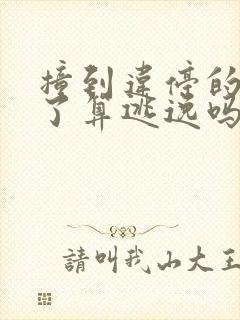 撞到违停的
了算逃逸吗
請叫我山大王